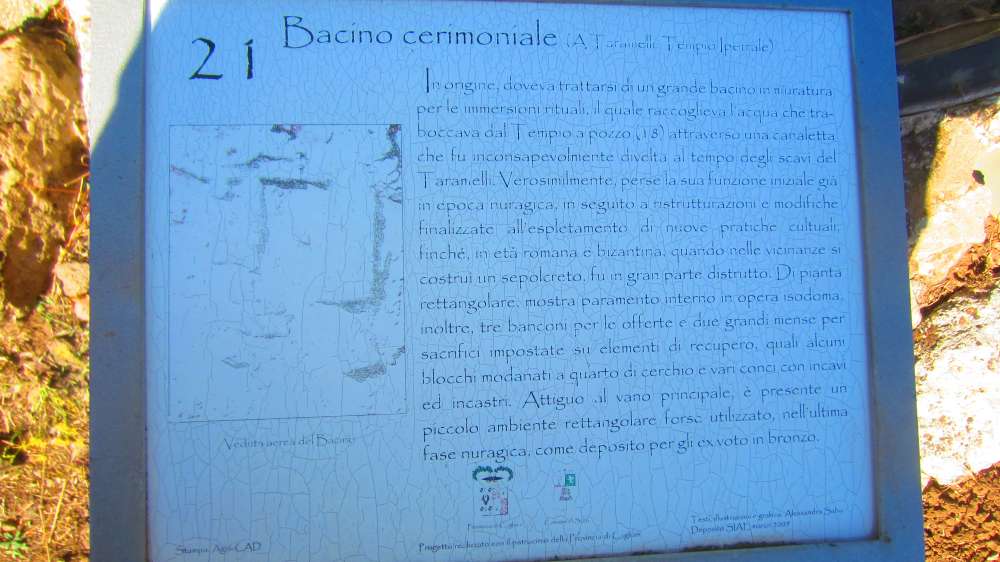 21
Bacino cerimoniale (A. Taramelli: Tempio Ipetrale)
In origine, doveva trattarsi di un grande bacino in muratura
per le immersioni rituali, il quale raccoglieva l'acqua che tra-
boccava dal Tempio a pozzo (18) attraverso una canaletta
che fu inconsapevolmente divelta al tempo degli scavi del
Taramelli. Verosimilmente, perse la sua funzione iniziale già
in epoca nuragica, in seguito a ristrutturazioni e modifiche
finalizzate all'espletamento di nuove pratiche cultuali,
finché, in età romana e bizantina, quando nelle vicinanze si
costruì un sepolcreto, fu in gran parte distrutto. Di pianta
rettangolare, mostra paramento interno in opera isodoma,
inoltre, tre banconi per le offerte e due grandi mense per
sacrifici impostate su elementi di recupero, quali alcuni
blocchi modanati a quarto di cerchio e vari conci con incavi
ed incastri. Attiguo al vano principale, è presente un
piccolo ambiente rettangolare forse utilizzato, nell'ultima
fase nuragica, come deposito per gli ex voto in bronzo.
Veduta aerea del Bacino
Provincia di Cagliari
Comune di
Stampa: Agili-CAD
Progetto realizzato con il patrocinio della Provincia di Cagliari
Testi, illustrazioni e grafica: Alessandra Saba
Deposito SIAE marzo 2007